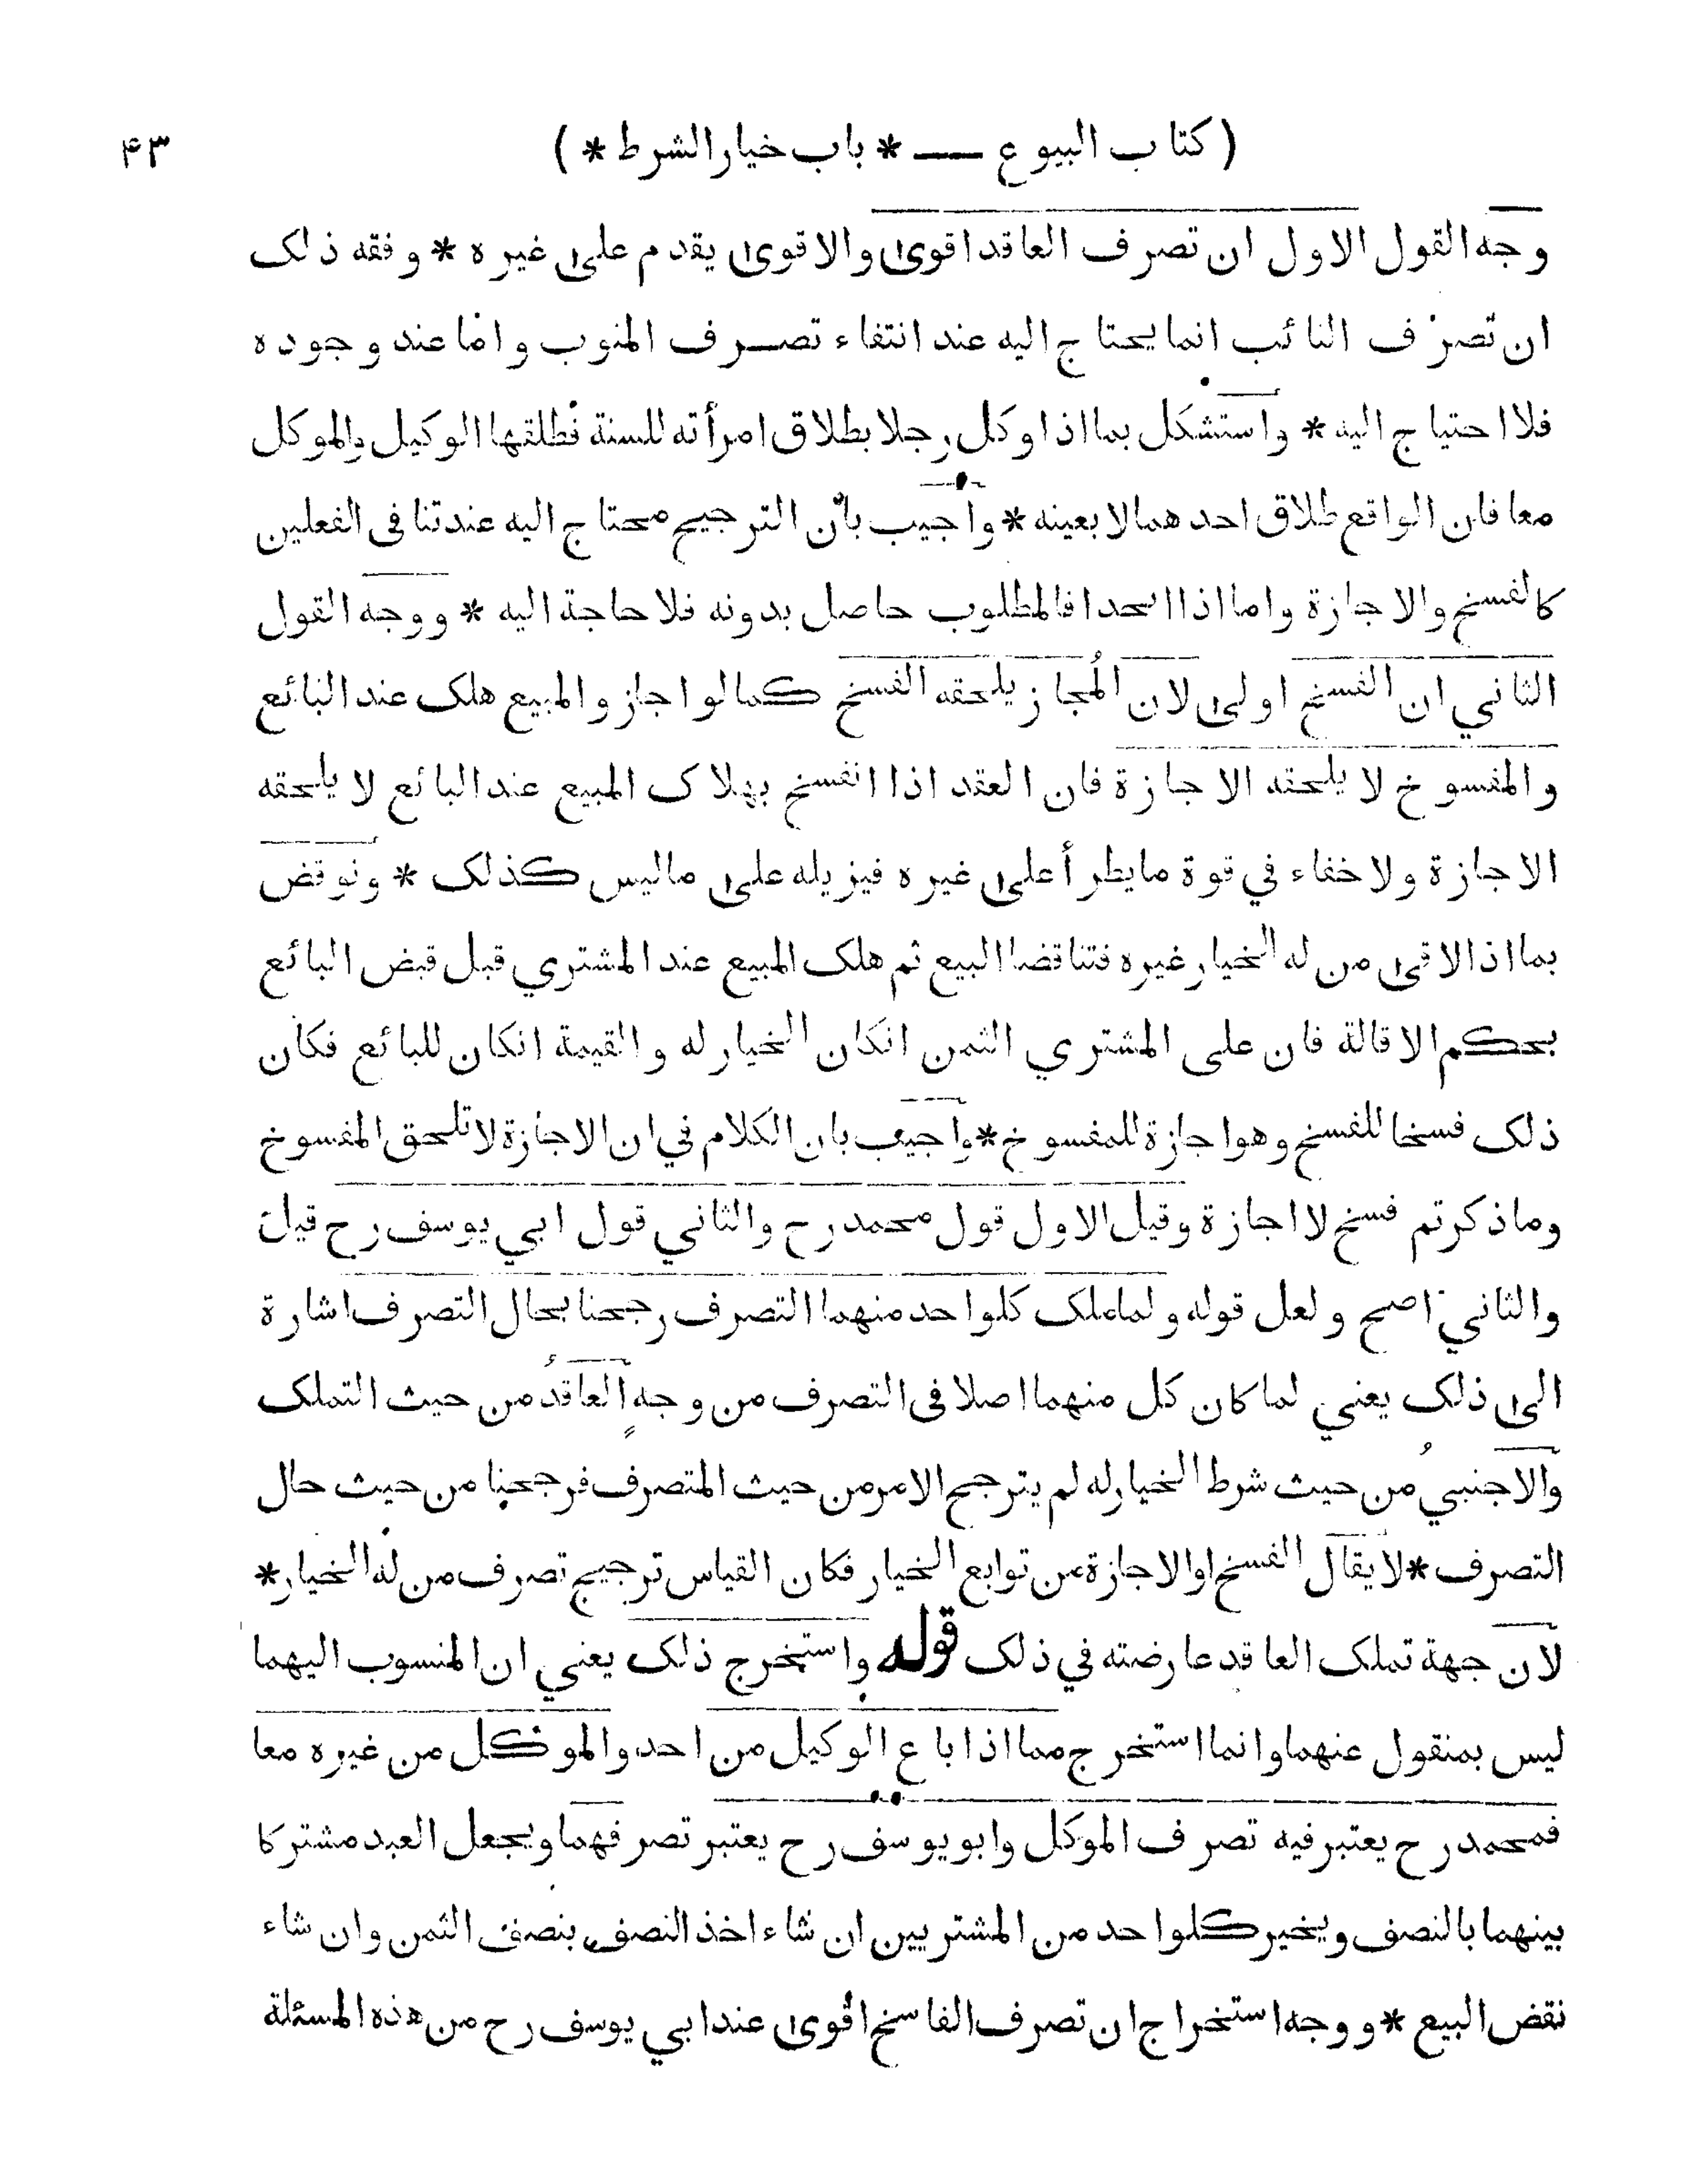 ( كتاب البيوع — * باب خيار الشرط * )
۴۳
وجه القول الاول ان تصرف العاقد اقوى والاقوى يقدم على غيره * وفقه ذلك
ان تصرف النائب انما يحتاج اليه عند انتفاء تصرف المنوب واما عند وجوده
فلا احتياج اليه * واستشكل بما اذا وكل رجلا بطلاق امرأته للسنة فطلقها الوكيل والموكل
معا فان الواقع طلاق احدهما لا بعينه * واجيب بان الترجيح محتاج اليه عند تنافي الفعلين
كالفسخ والاجازة واما اذا اتحدا فالمطلوب حاصل بدونه فلا حاجة اليه * ووجه القول
الثاني ان الفسخ اولى لان المُجاز يلحقه الفسخ كما لو اجاز والمبيع هلك عند البائع
والمفسوخ لا يلحقه الاجازة فان العقد اذا انفسخ بهلاك المبيع عند البائع لا يلحقه
الاجازة ولا خفاء في قوة ما يطرأ على غيره فيزيله على ما ليس كذلك * ونوقض
بما اذا لاقى من له الخيار غيره فتناقضا البيع ثم هلك المبيع عند المشتري قبل قبض البائع
بحكم الاقالة فان على المشتري الثمن انكان الخيار له والقيمة انكان للبائع فكان
ذلك فسخا للفسخ وهو اجازة للمفسوخ * واجيب بان الكلام في ان الاجازة لا تلحق المفسوخ
وما ذكرتم فسخ لا اجازة وقيل الاول قول محمد رح والثاني قول ابي يوسف رح قيل
والثاني اصح ولعل قوله ولما ملك كلواحد منهما التصرف رجحنا بحال التصرف اشارة
الى ذلك يعني لما كان كل منهما اصلا في التصرف من وجهٍ العاقدُ من حيث التملك
والاجنبيُ من حيث شرط الخيار له لم يترجح الامر من حيث المتصرف فرجحنا من حيث حال
التصرف * لا يقال الفسخ او الاجازة من توابع الخيار فكان القياس ترجيح تصرف من له الخيار *
لان جهة تملك العاقد عارضته في ذلك قوله واستخرج ذلك يعني ان المنسوب اليهما
ليس بمنقول عنهما وانما استخرج مما اذا باع الوكيل من احد والموكل من غيره معا
فمحمد رح يعتبر فيه تصرف الموكل وابو يوسف رح يعتبر تصرفهما ويجعل العبد مشتركا
بينهما بالنصف ويخير كلواحد من المشتريين ان شاء اخذ النصف بنصف الثمن وان شاء
نقض البيع * ووجه استخراج ان تصرف الفاسخ اقوى عند ابي يوسف رح من هذه المسئلة